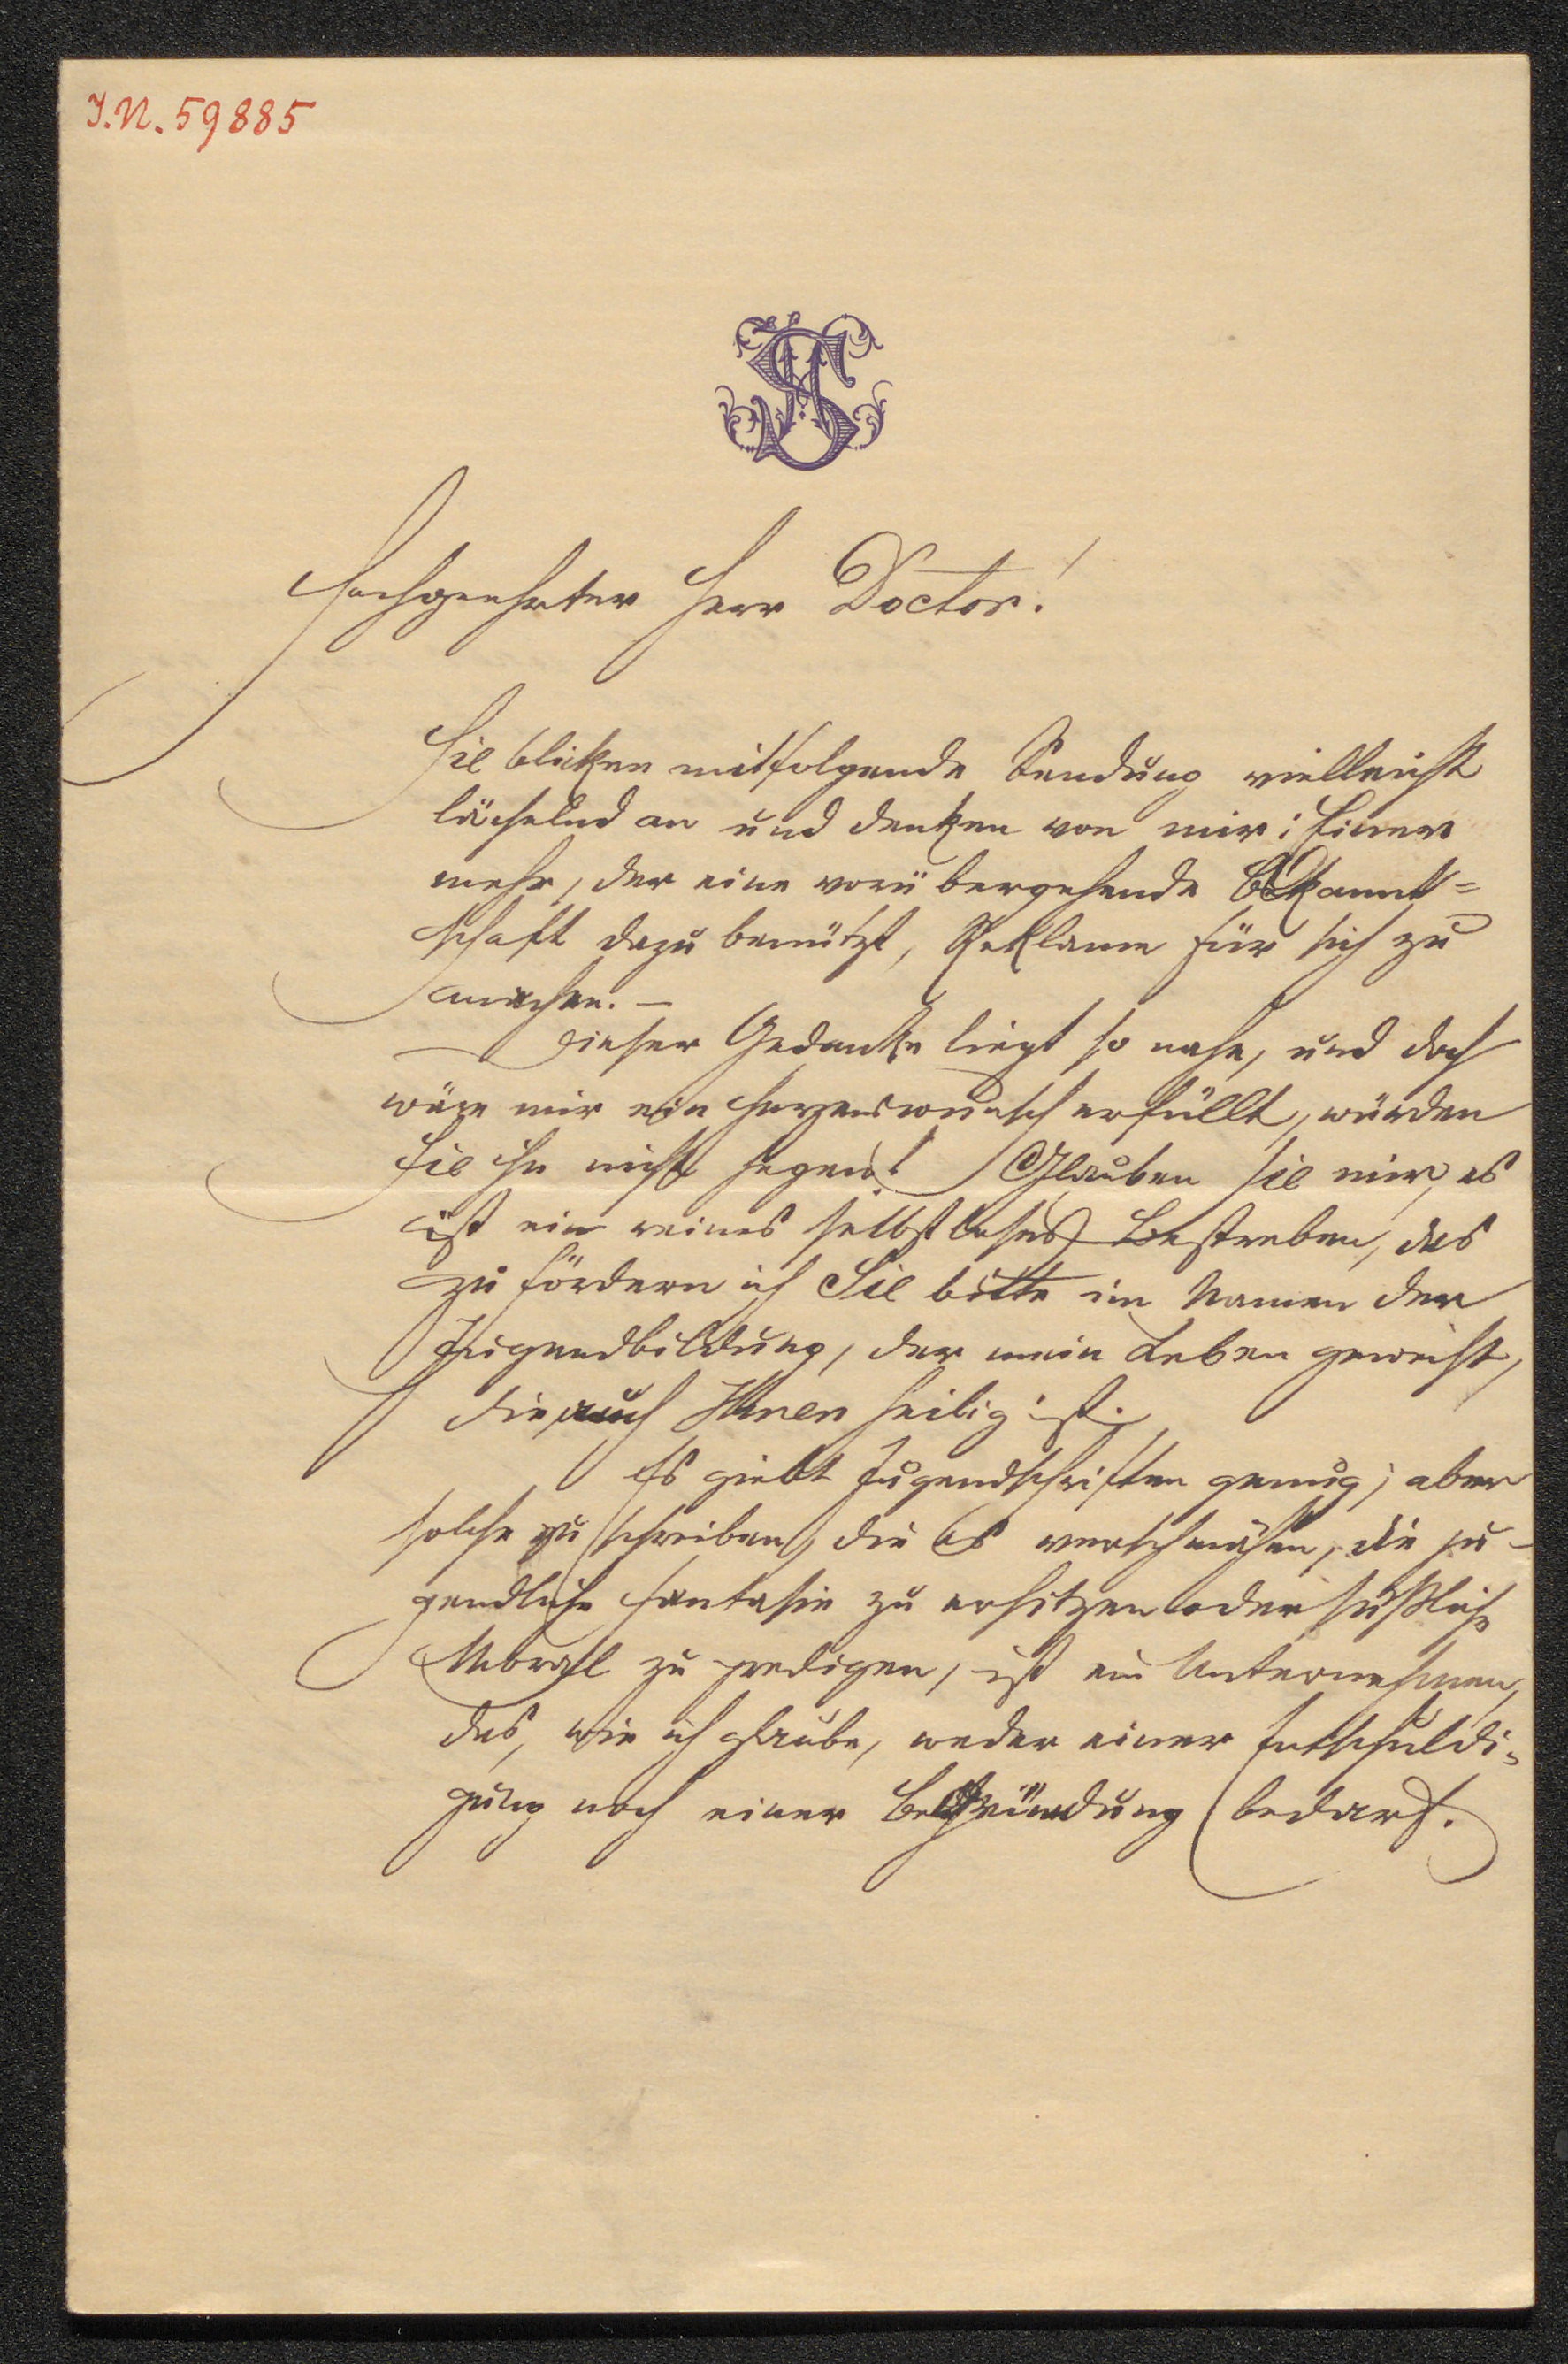 I.N. 59885
Hochgeehrter Herr Doctor!
Sie blicken mitfolgende Sendung vielleicht
lächelnd an und denken von mir: Einer
mehr, der eine vorübergehende Bekannt=
schaft dazu benützt, Reklame für sich zu
machen. –
Dieser Gedanke liegt so nahe, und doch
wäre mir ein Herzenswunsch erfüllt, würden
Sie ihn nicht hegen! Glauben Sie mir, es
ist ein reines selbstloses Bestreben, das
zu fördern ich Sie bitte im Namen der
Jugendbildung, der mein Leben geweiht,
die auch Ihnen heilig ist.
Es giebt Jugendschriften genug; aber
solche zu schreiben, die es verschmähen, die ju-
gendliche Fantasie zu erhitzen oder süßliche
Moral zu predigen, ist ein Unternehmen,
das, wie ich glaube, weder einer Entschuldi=
gung noch einer Begründung bedarf.